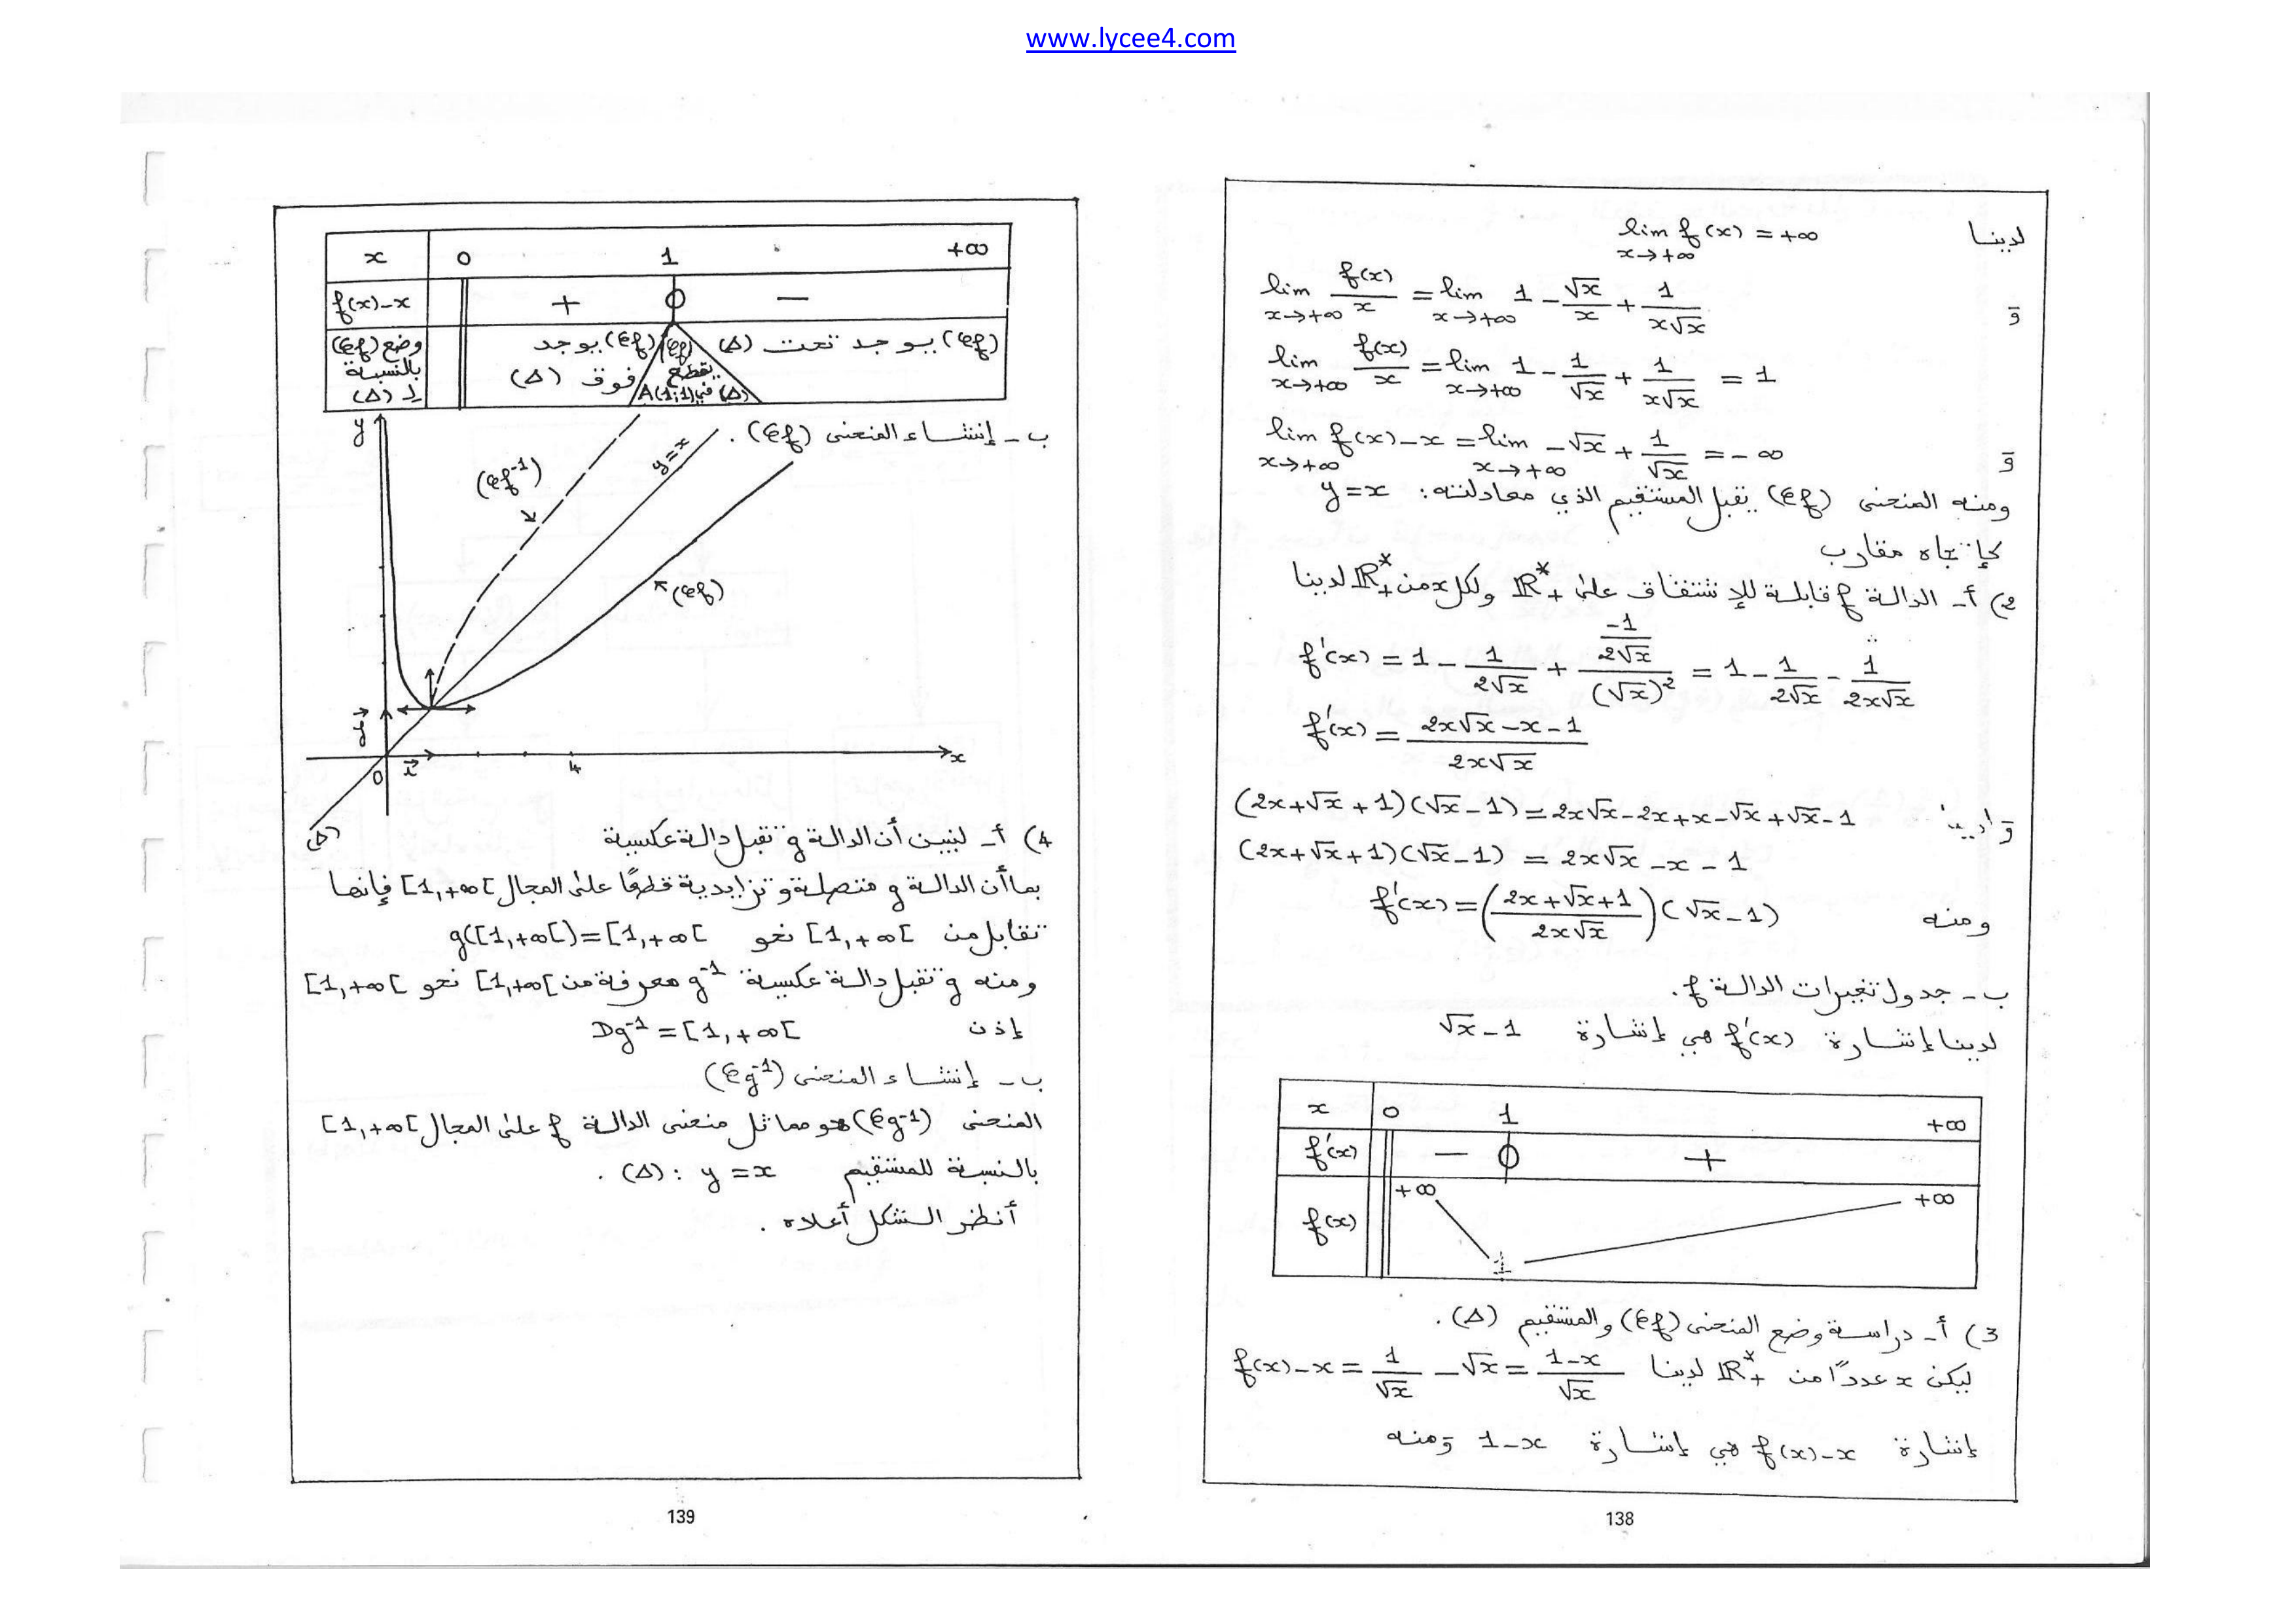 www.lycee4.com
لدينا lim f(x) = +∞
x→+∞
و lim f(x)/x = lim 1 - √x/x + 1/(x√x)
x→+∞ x→+∞
lim f(x)/x = lim 1 - 1/√x + 1/(x√x) = 1
x→+∞ x→+∞
و lim f(x)-x = lim -√x + 1/√x = -∞
x→+∞ x→+∞
ومنه المنحنى (𝒞f) يقبل المستقيم الذي معادلته: y=x
كإتجاه مقارب
2) أ- الدالة f قابلة للإشتقاق على ℝ*+ ولكل x من ℝ*+ لدينا
f'(x) = 1 - 1/(2√x) + (-1/(2√x))/(√x)² = 1 - 1/(2√x) - 1/(2x√x)
f'(x) = (2x√x - x - 1)/(2x√x)
ولدينا (2x+√x+1)(√x-1) = 2x√x-2x+x-√x+√x-1
(2x+√x+1)(√x-1) = 2x√x - x - 1
ومنه f'(x) = ((2x+√x+1)/(2x√x))(√x-1)
ب- جدول تغيرات الدالة f.
لدينا إشارة f'(x) هي إشارة √x-1
x 0 1 +∞
f'(x) - 0 +
f(x) +∞ 1 +∞
3) أ- دراسة وضع المنحنى (𝒞f) والمستقيم (Δ).
ليكن x عددًا من ℝ*+ لدينا f(x)-x = 1/√x - √x = (1-x)/√x
إشارة f(x)-x هي إشارة 1-x ومنه
138
x 0 1 +∞
f(x)-x + 0 -
وضع (𝒞f) بالنسبة لِ (Δ)
(𝒞f) يوجد فوق (Δ)
(𝒞f) يقطع (Δ) في A(1;1)
(𝒞f) يوجد تحت (Δ)
ب- إنشاء المنحنى (𝒞f).
y
(𝒞f⁻¹)
y=x
(𝒞f)
j
0 i 4 x
(Δ)
4) أ- لنبين أن الدالة g تقبل دالة عكسية
بما أن الدالة g متصلة وتزايدية قطعًا على المجال [1,+∞[ فإنها
تقابل من [1,+∞[ نحو g([1,+∞[)=[1,+∞[
ومنه g تقبل دالة عكسية g⁻¹ معرفة من [1,+∞[ نحو [1,+∞[
إذن Dg⁻¹ = [1,+∞[
ب- إنشاء المنحنى (𝒞g⁻¹)
المنحنى (𝒞g⁻¹) هو مماثل منحنى الدالة f على المجال [1,+∞[
بالنسبة للمستقيم (Δ): y=x.
أنظر الشكل أعلاه.
139